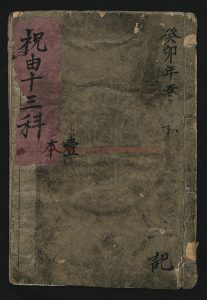 祝由十三科
壹
本
癸卯年
記